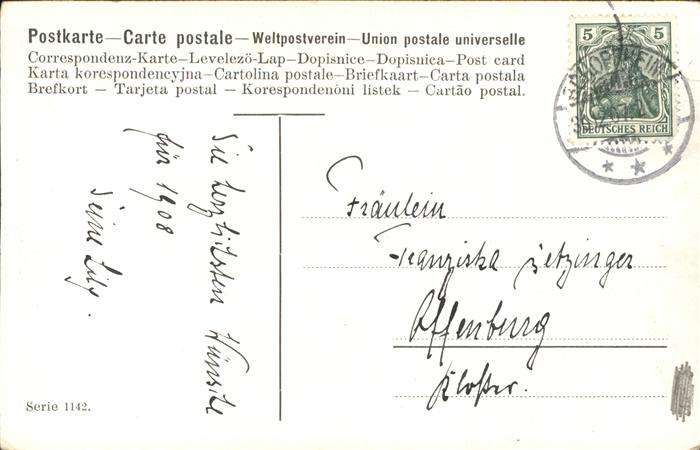 Postkarte—Carte postale—Weltpostverein—Union postale universelle
Correspondenz-Karte—Levelező-Lap—Dopisnice—Dopisnica—Post card
Karta korespondencyjna—Cartolina postale—Briefkaart—Carta postala
Brefkort — Tarjeta postal — Korespondenóni listek — Cartão postal.
5 5
DEUTSCHES REICH
Die herzlichsten Wünsche
für 1908
Deine
Fräulein
Franziska Zetzinger
Offenburg
Kloster.
Serie 1142.